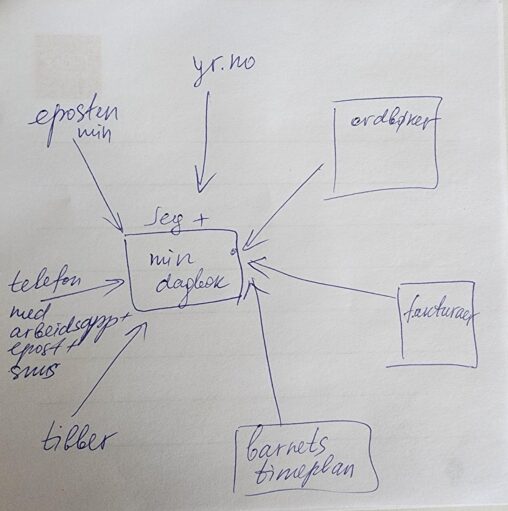 yr.no
eposten
min
ordbøker
Jeg +
min
dagbok
telefon
med
arbeidsapp +
epost +
sms
fakturaer
tibber
barnets
timeplan